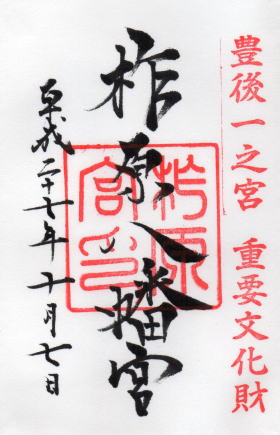 豊後一之宮 重要文化財
柞原八幡宮
平成二十七年十月七日
柞原
宮印